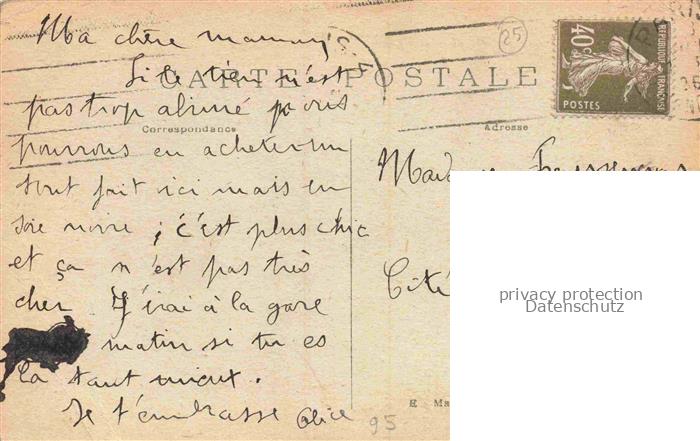 Ma chère maman,
Si le tien n'est
pas trop abimé nous
pourrons en acheter un
tout fait ici mais en
soie noire ; c'est plus chic
et ça n'est pas très
cher. J'irai à la gare
matin si tu es
là tant mieux.
Je t'embrasse Alice
CARTE POSTALE
Correspondance
Adresse
25
40c
REPUBLIQUE FRANÇAISE
POSTES
PARIS
Cité
privacy protection
Datenschutz
E Ma
95